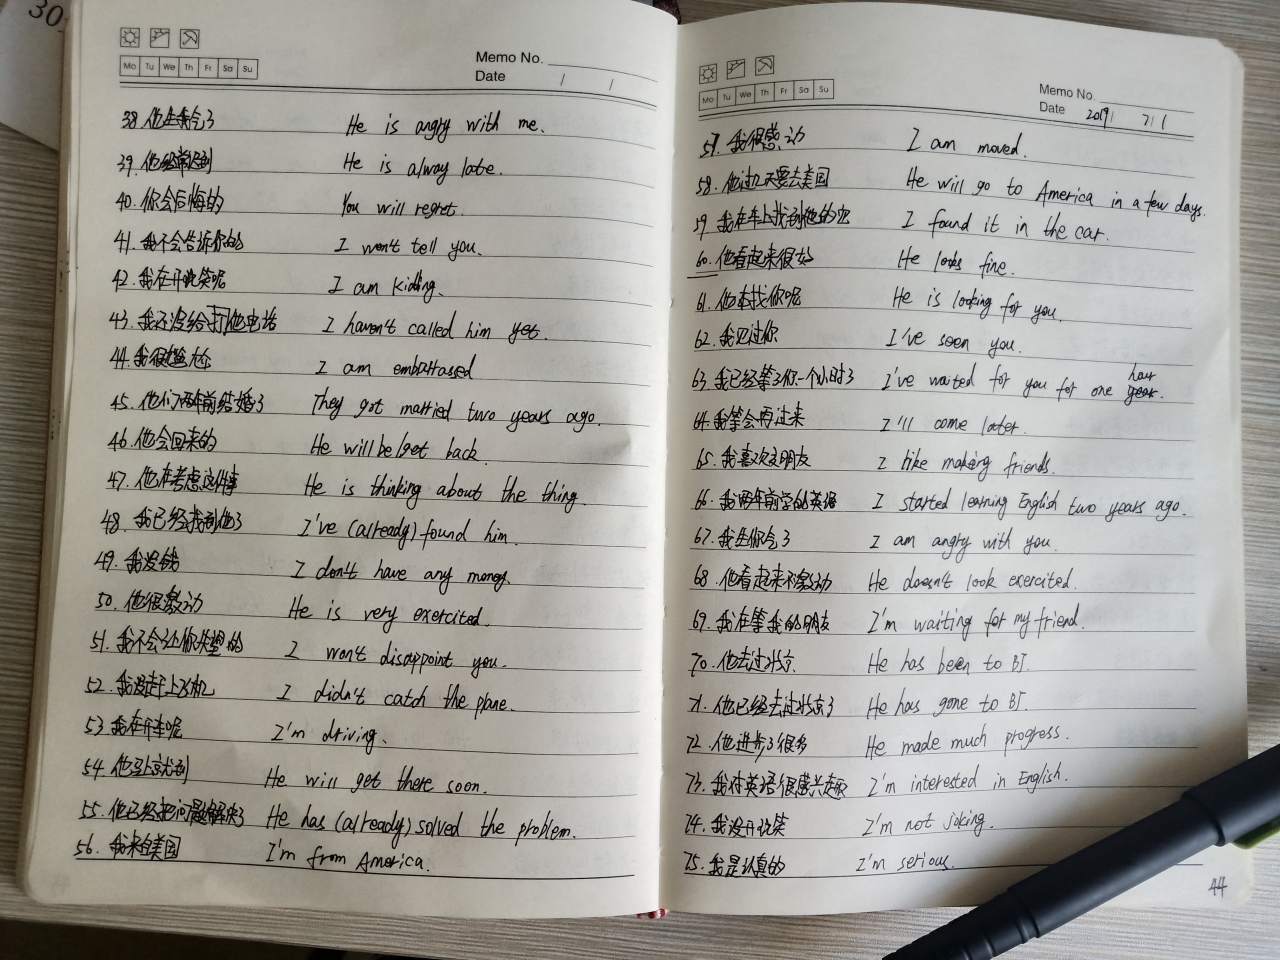 30
Mo Tu We Th Fr Sa Su
Memo No.
Date / /
38. 他生我气了 He is angry with me.
39. 他经常迟到 He is alway late.
40. 你会后悔的 You will regret.
41. 我不会告诉你的 I won't tell you.
42. 我在开玩笑呢 I am kidding.
43. 我还没给打他电话 I haven't called him yet.
44. 我很尴尬 I am embarrased
45. 他们两年前结婚了 They got married two years ago.
46. 他会回来的 He will be/get back.
47. 他在考虑这件事 He is thinking about the thing.
48. 我已经找到他了 I've (already) found him.
49. 我没钱 I don't have any money.
50. 他很激动 He is very exercited.
51. 我不会让你失望的 I won't disappoint you.
52. 我没赶上飞机 I didn't catch the plane.
53. 我在开车呢 I'm driving.
54. 他马上就到 He will get there soon.
55. 他已经把问题解决了 He has (already) solved the problem.
56. 我来自美国 I'm from America.
Mo Tu We Th Fr Sa Su
Memo No.
Date 2019/ 7/1
57. 我很感动 I am moved.
58. 他过几天要去美国 He will go to America in a few days.
59. 我在车上找到他的呢 I found it in the car.
60. 他看起来很好 He looks fine.
61. 他在找你呢 He is looking for you.
62. 我见过你 I've seen you.
63. 我已经等了你一个小时了 I've waited for you for one year. hour
64. 我等会再过来 I'll come later.
65. 我喜欢交朋友 I like making friends.
66. 我两年前学的英语 I started learning English two years ago.
67. 我生你气了 I am angry with you.
68. 他看起来不激动 He doesn't look exercited.
69. 我在等我的朋友 I'm waiting for my friend.
70. 他去过北京 He has been to BJ.
71. 他已经去过北京了 He has gone to BJ.
72. 他进步了很多 He made much progress.
73. 我对英语很感兴趣 I'm interested in English.
74. 我没开玩笑 I'm not joking.
75. 我是认真的 I'm serious.
44